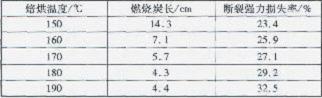 焙烘温度/℃ 燃烧炭长/cm 断裂强力损失率/%
150 14.3 23.4
160 7.1 25.9
170 5.7 27.1
180 4.3 29.2
190 4.4 32.5